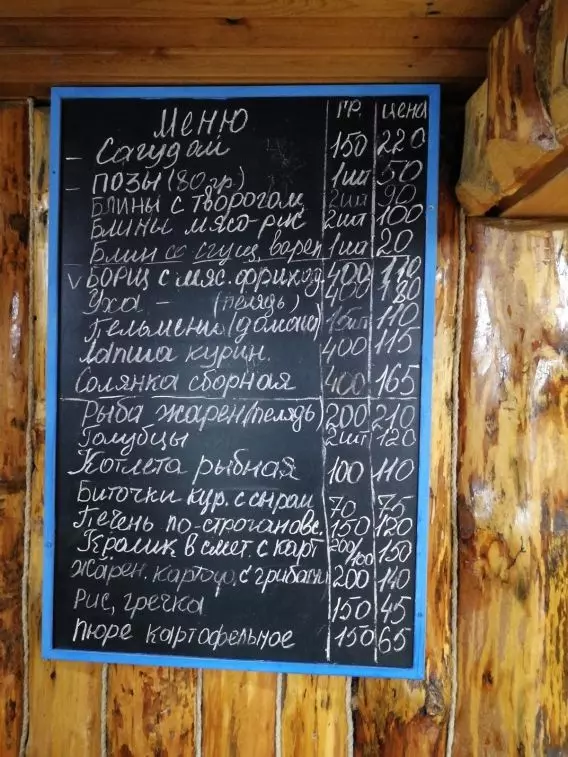 Меню гр. цена
- Сагудай 150 220
- позы (80 гр) 1шт 50
Блины с творогом 2шт 90
Блины мясо-рис 2шт 100
Блин со сгущ. варен 1шт 20
v Борщ с мяс. фрикад 400 110
Уха - (пелядь) 400 180
Пельмени (домашн) 15шт 110
Лапша курин. 400 115
Солянка сборная 400 165
Рыба жарен (пелядь) 200 210
Голубцы 2шт 120
Котлета рыбная 100 110
Биточки кур. с сыром 70 75
Печень по-строгановс. 150 120
Кролик в смет. с карт 200/100 150
жарен. картоф. с грибами 200 140
Рис, гречка 150 45
пюре картофельное 150 65